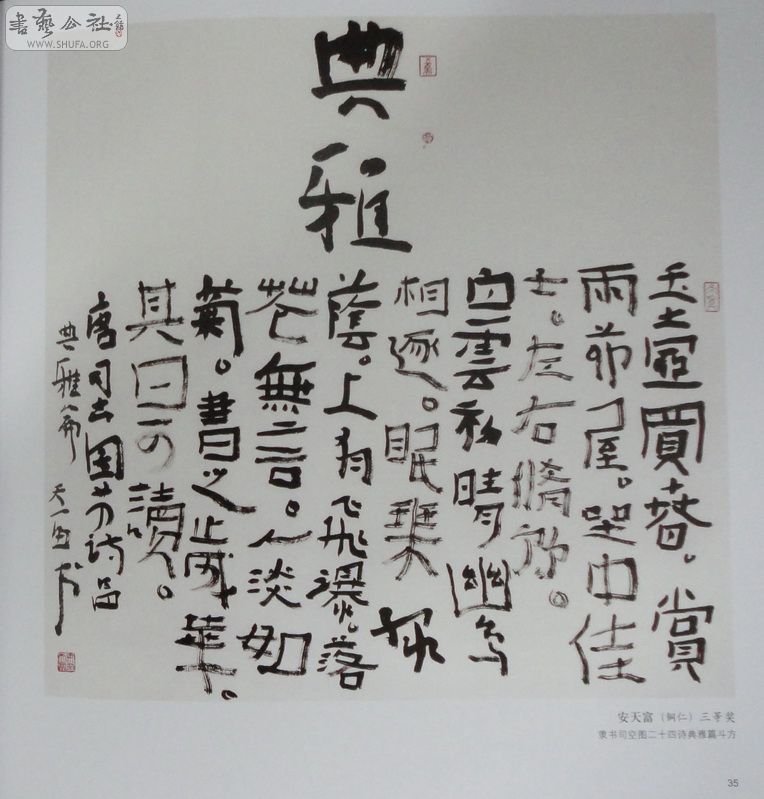 書藝公社
WWW.SHUFA.ORG
典雅
玉壺買春。賞
雨茆屋。坐中佳
士。左右脩竹。
白雲初晴幽鳥
相逐。眠琴綠
蔭。上有飛瀑。落
花無言。人淡如
菊。書之歲華。
其曰可讀。
唐司空图廿四诗品
典雅篇 天富书
安天富（铜仁）三等奖
隶书司空图二十四诗典雅篇斗方
35